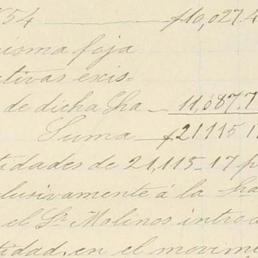 54 $10,027.4
misma foja
ctivas exis-
de dicha fha 11,087.7
Suma $21,115.1
tidades de 21,115-17 p
clusivamente á la ha
el Sr. Molinos introd
tidad, en el movime